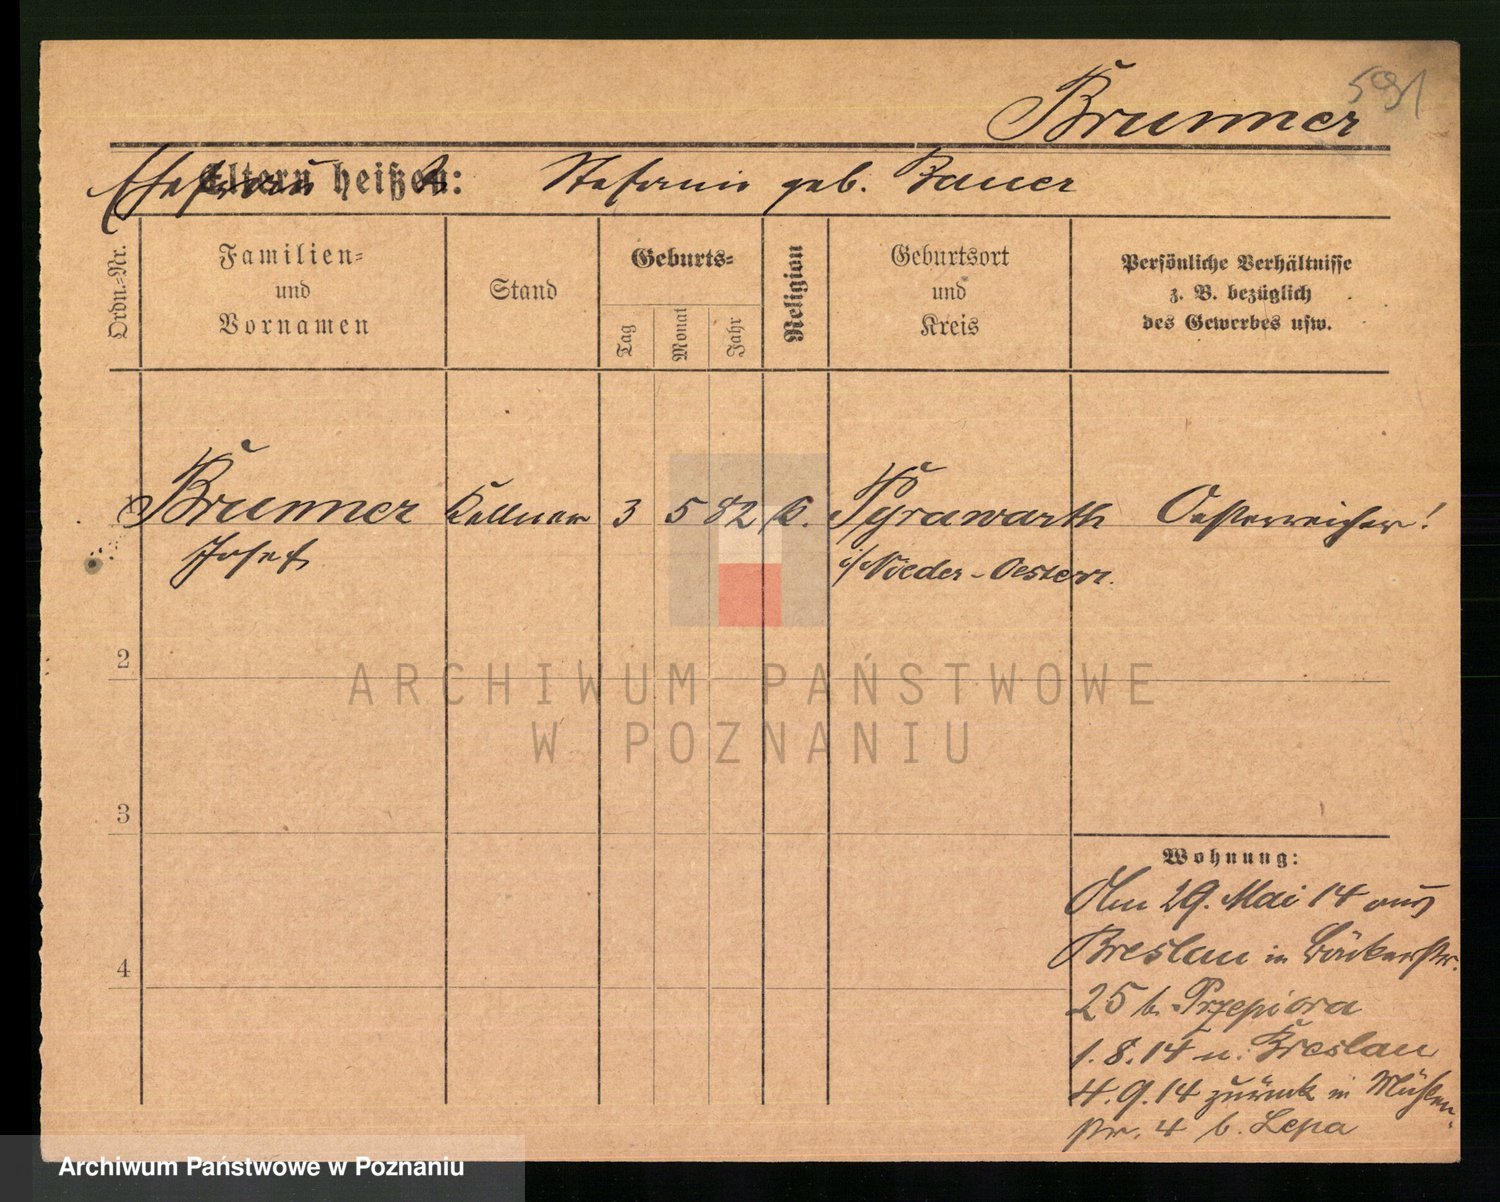 591
Brunner
Ehefrau Eltern heißen: Stefanie geb. Bauer
Ordn.=Nr.
Familien=
und
Vornamen
Stand
Geburts=
Tag
Monat
Jahr
Religion
Geburtsort
und
Kreis
Persönliche Verhältnisse
z. B. bezüglich
des Gewerbes usw.
Brunner Kellner 3 5 82 k. Pyrawarth Oesterreicher!
Josef i/Nieder-Oesterr.
2
ARCHIWUM PAŃSTWOWE
W POZNANIU
3
Wohnung:
Am 29. Mai 14 aus
Breslau in Bäckerstr.
4
25 b. Przepiora
1.8.14 n. Breslau
4.9.14 zurück in Mühlen-
str. 4 b. Lepa
Archiwum Państwowe w Poznaniu